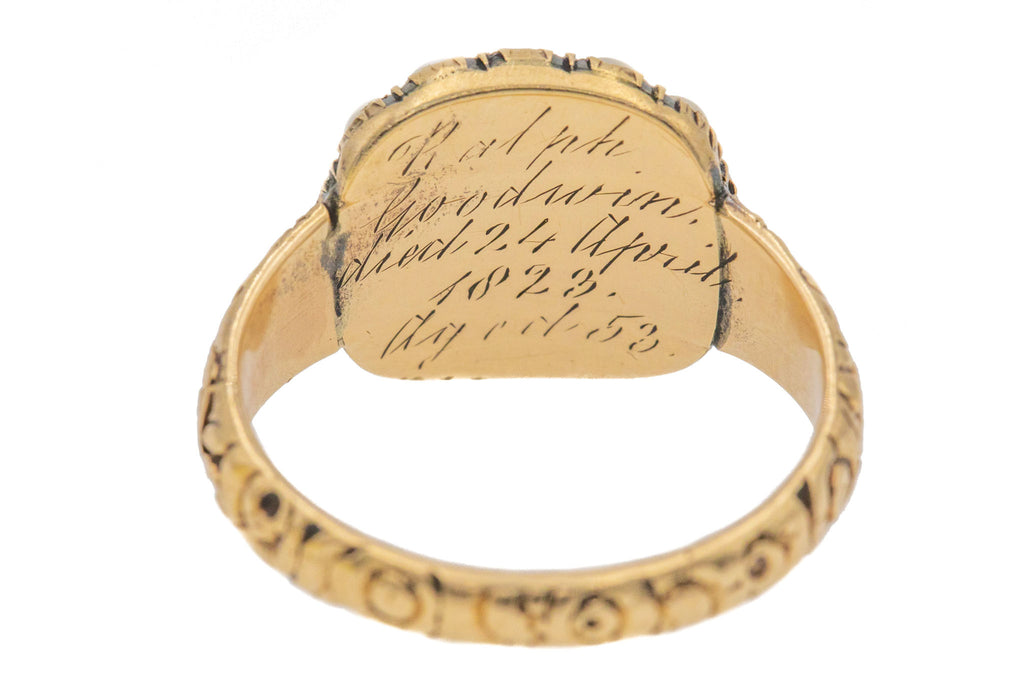 Ralph
Goodwin,
died 24 April,
1823.
Aged 53.